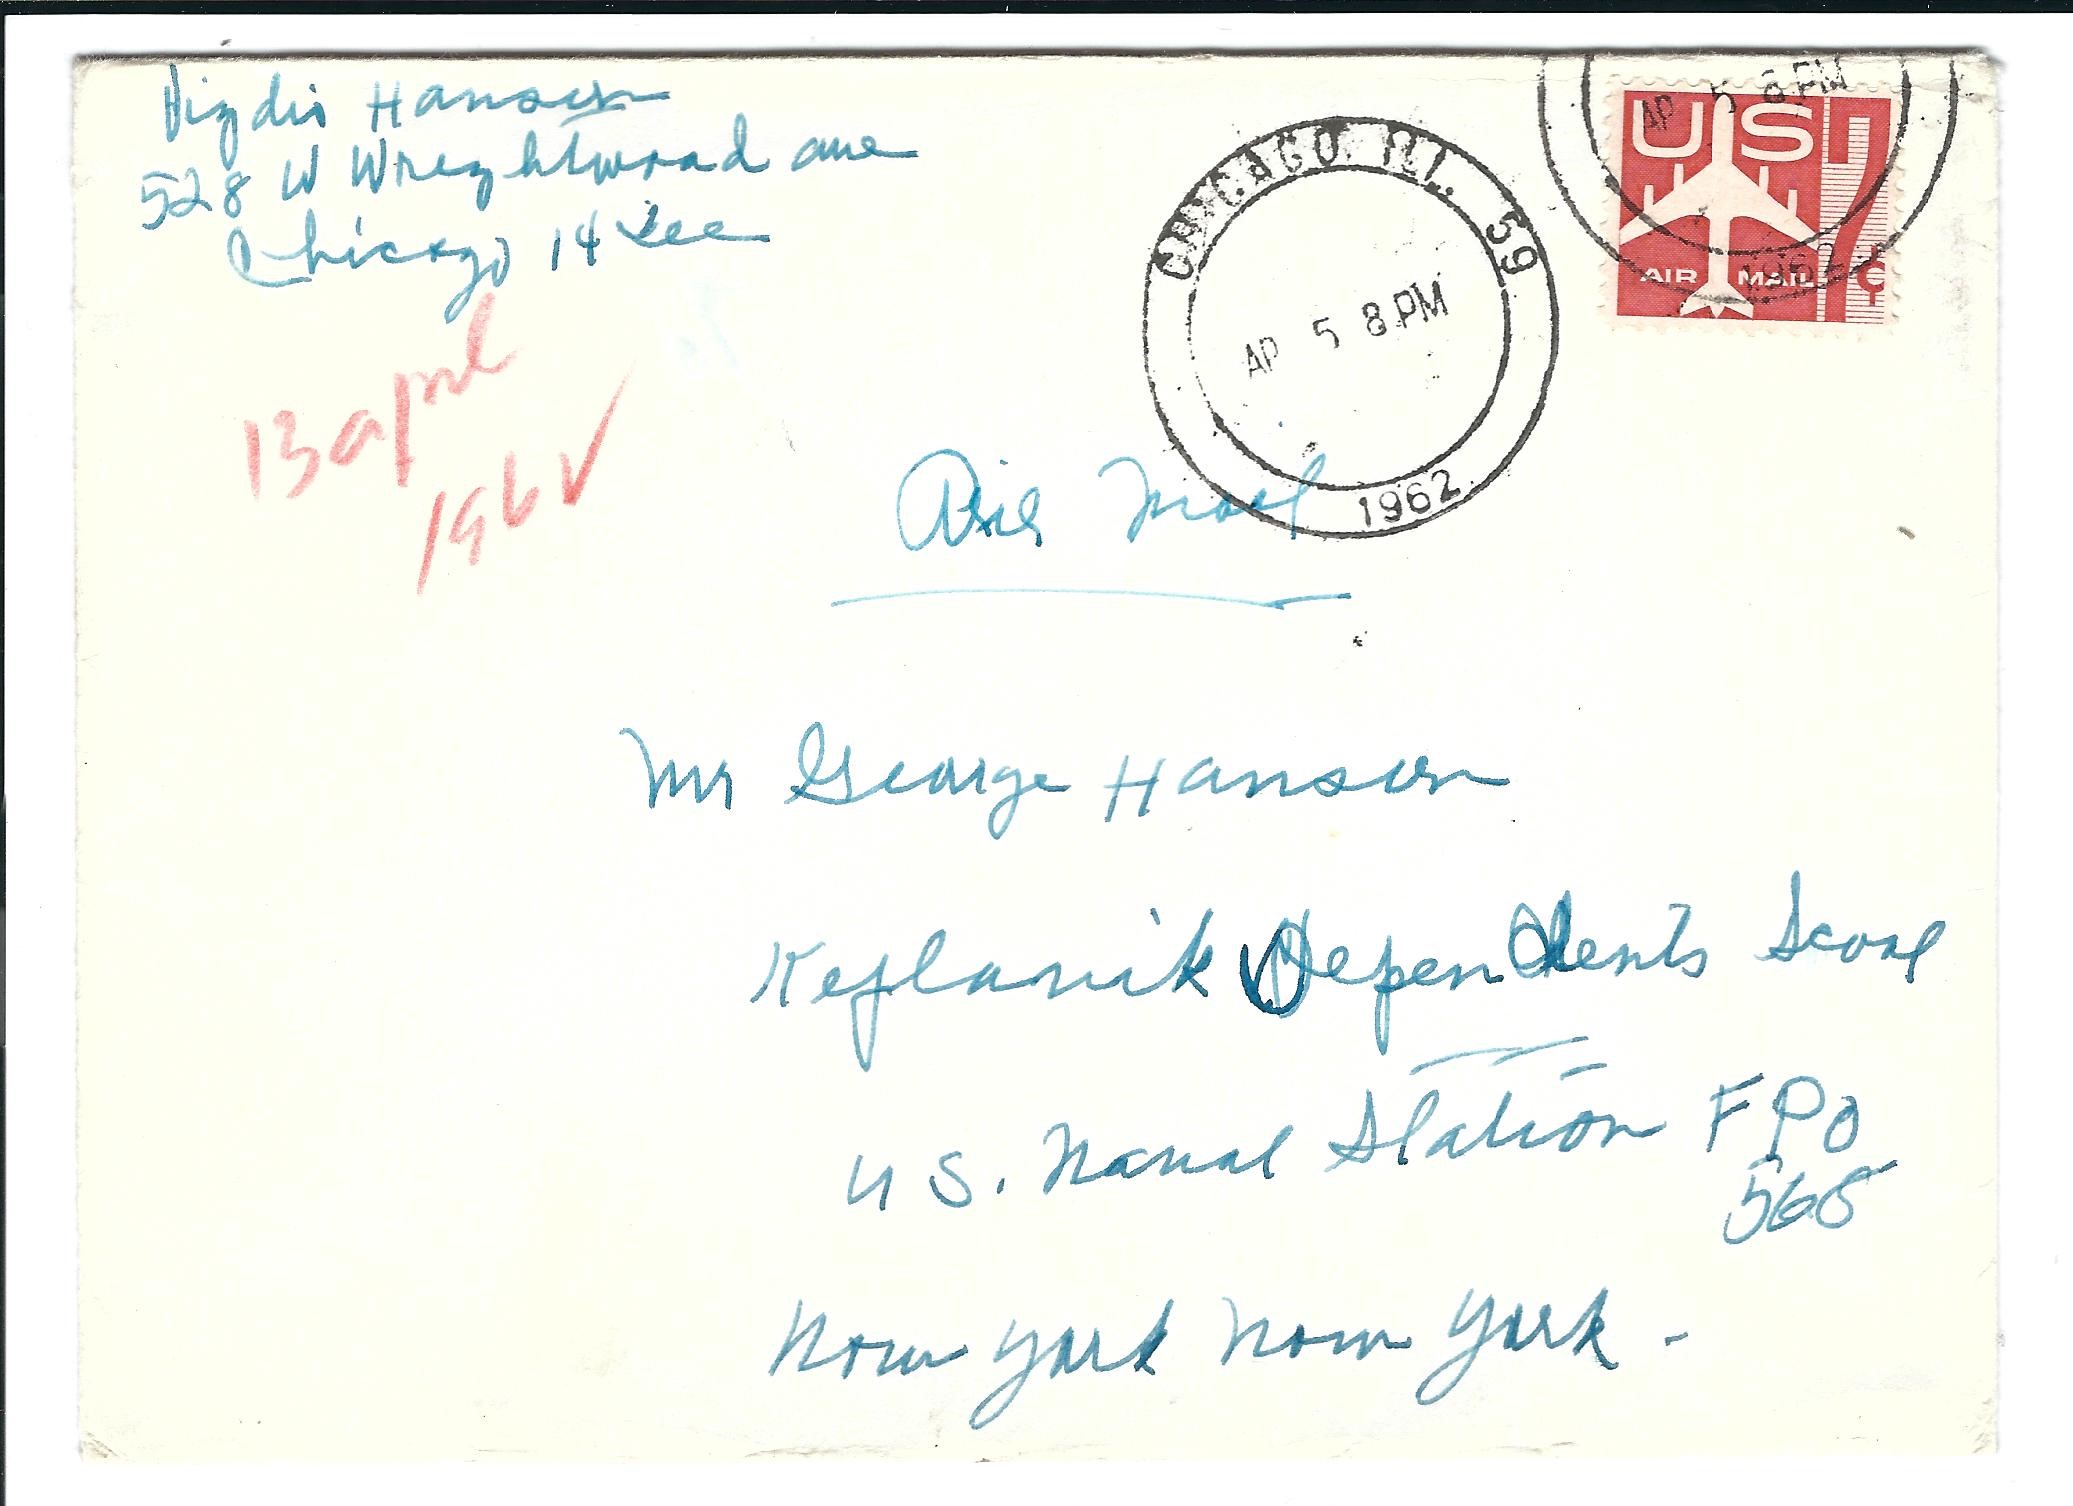 Hansen
528 W Wreghtwood ave
Chicago 14 Ill
13 april
1962
CHICAGO, ILL. 59
AP 5 8 PM
1962
AP 5 8 PM
1962
US
AIR MAIL 7¢
Air Mail
Mr George Hansen
Keflavik Dependents Scool
U S. Naval Station FPO
568
New York New York -